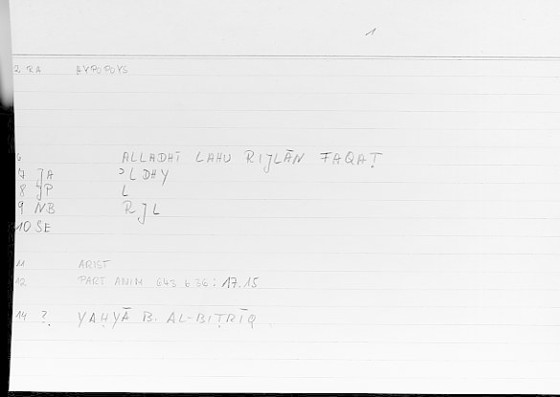 1
2 RA ΔYPOPOYS
6 ALLADHĪ LAHU RIJLĀN FAQAṬ
7 JA ʾLDHY
8 JP L
9 NB RJL
10 SE
11 ARIST
12 PART ANIM 643 b 36: 17.15
14 ?. YAḤYĀ B. AL-BIṬRĪQ